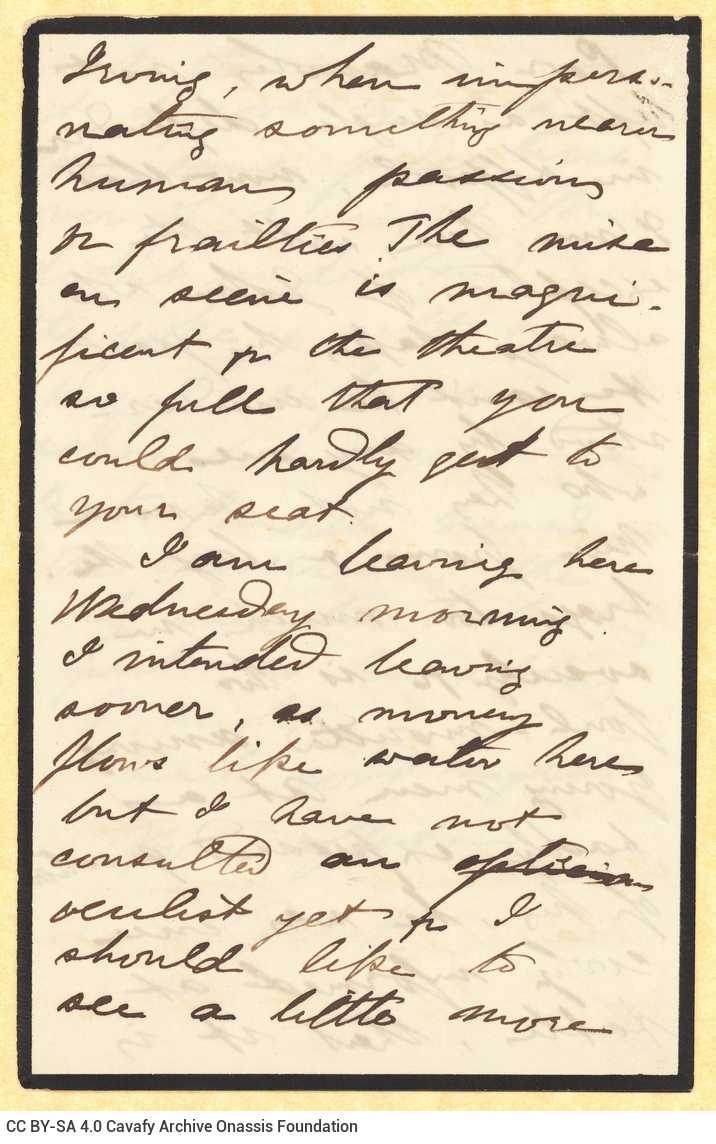 Irving, when imperso-
nating something nearer
human passions
or frailties. The mise
en scène is magni-
ficent & the theatre
so full that you
could hardly get to
your seat.
I am leaving here
Wednesday morning.
I intended leaving
sooner, as money
flows like water here
but I have not
consulted an optician
oculist yet & I
should like to
see a little more
CC BY-SA 4.0 Cavafy Archive Onassis Foundation